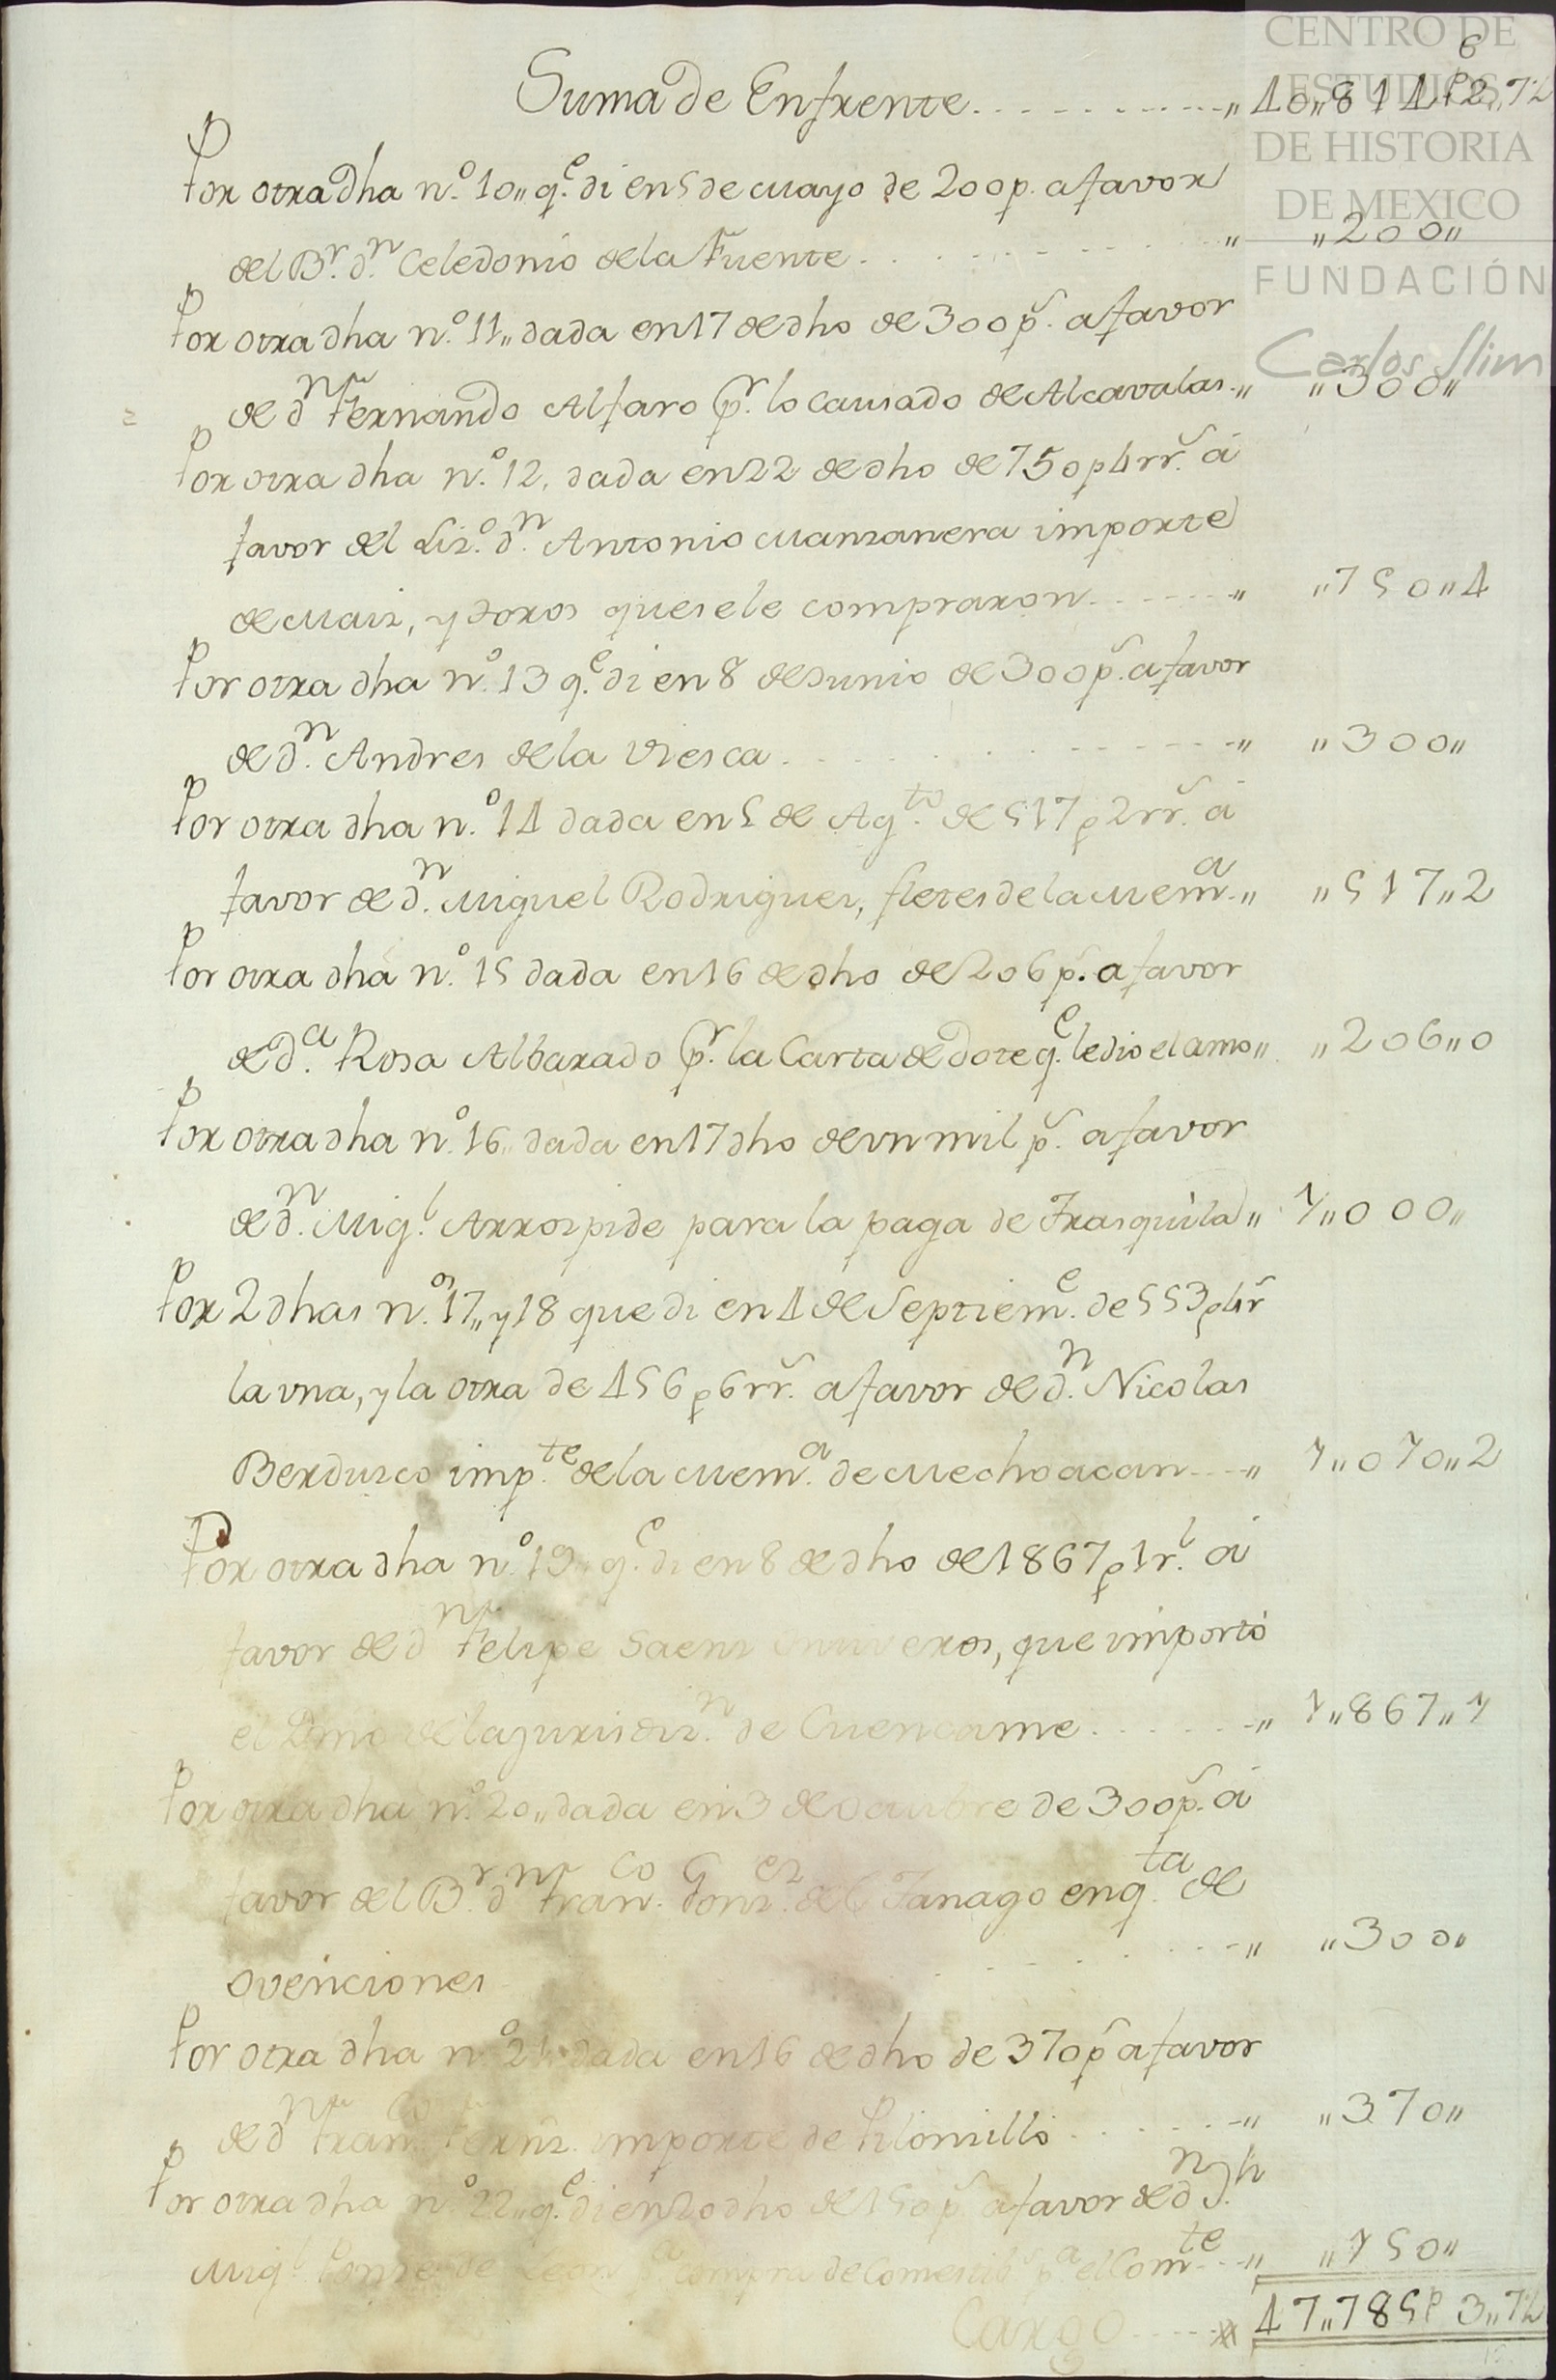 CENTRO DE
ESTUDIOS
DE HISTORIA
DE MEXICO
FUNDACIÓN
Carlos Slim
Suma de Enfrente. . . . . . . . . . „ 40„814p2„7½
Por otra dha n.º 10„ q.e di en 5 de Mayo de 200p. a favor
del B.r d.n Celedonio de la Fuente. . . . . . „ „200„
Por otra dha n.º 11„ dada en 17 de dho de 300p.s a favor
de d.n Fernando Alfaro p.r lo causado de Alcavalas.„ „300„
Por otra dha n.º 12. dada en 22 de dho de 750p4rr.s á
favor del Liz.º d.n Antonio Manzanera importe
de Maiz, y toros que se le compraron. . . . . „ „750„4
Por otra dha n.º 13 q.e di en 8 de Junio de 300p.s a favor
de d.n Andres de la Viesca. . . . . . . „ „300„
Por otra dha n.º 14 dada en 5 de Ag.to de 517p2rr.s á
favor de d.n Miguel Rodriguez, fletes de la Mem.a „ „517„2
Por otra dha n.º 15 dada en 16 de dho de 206p.s a favor
de d.a Rosa Albarado p.r la Carta de Dote q.e le dio el amo„ „206„0
Por otra dha n.º 16„ dada en 17 dho de vn mil p.s a favor
de d.n Mig.l Arrospide para la paga de Trasquila„ 1„000„
Por 2 dhas n.os 17„ y 18 que di en 4 de Septiem.e de 553p4r.s
la vna, y la otra de 456p6rr.s a favor de d.n Nicolas
Berdusco imp.te de la Mem.a de Mechoacan. . . „ 1„010„2
Por otra dha n.º 19„ q.e di en 8 de dho de 1867p1r.l á
favor de d.n Felipe Saenz que importó
el de la jurisdiz.n de Cuencame. . . . . „ 1„867„1
Por otra dha n.º 20„ dada en 3 de Octubre de 300p.s á
favor del B.r d.n Fran.co Gonz.ez del Tanago en q.ta de
ovenciones . . . . „ „300„
Por otra dha n.º 21„ dada en 16 de dho de 370p.s a favor
de d.n Fran.co Fernz. importe de Piloncillo . . . . „ „370„
Por otra dha n.º 22„ q.e di en 20 dho de 150p.s a favor de d.n J.ph
Mig.l Ponze de Leon p.a compra de Comestib.s p.a el Com.te . . „ „150„
Cargo . . . . 47„785p 3„7½